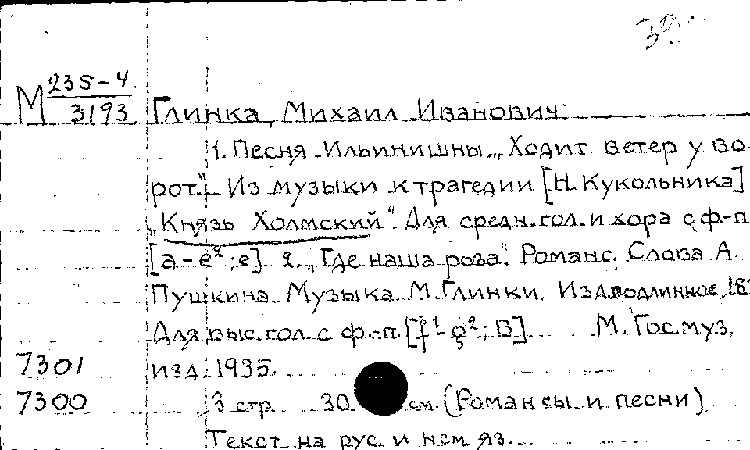 М 235-4
3193 Глинка, Михаил Иванович
1. Песня Ильинишны „Ходит ветер у во-
рот". Из музыки к трагедии [Н. Кукольника]
„Князь Холмский". Для средн. гол. и хора с ф-п
[a-e²; e] 2. „Где наша роза". Романс. Слова А.
Пушкина. Музыка М. Глинки. Изд. подлинное, 18
Для выс. гол. с ф.-п. [f¹-g²; B] М. Гос. муз.
7301 изд. 1935
7300 3 стр. 30 см. (Романсы и песни)
Текст на рус. и нем яз.